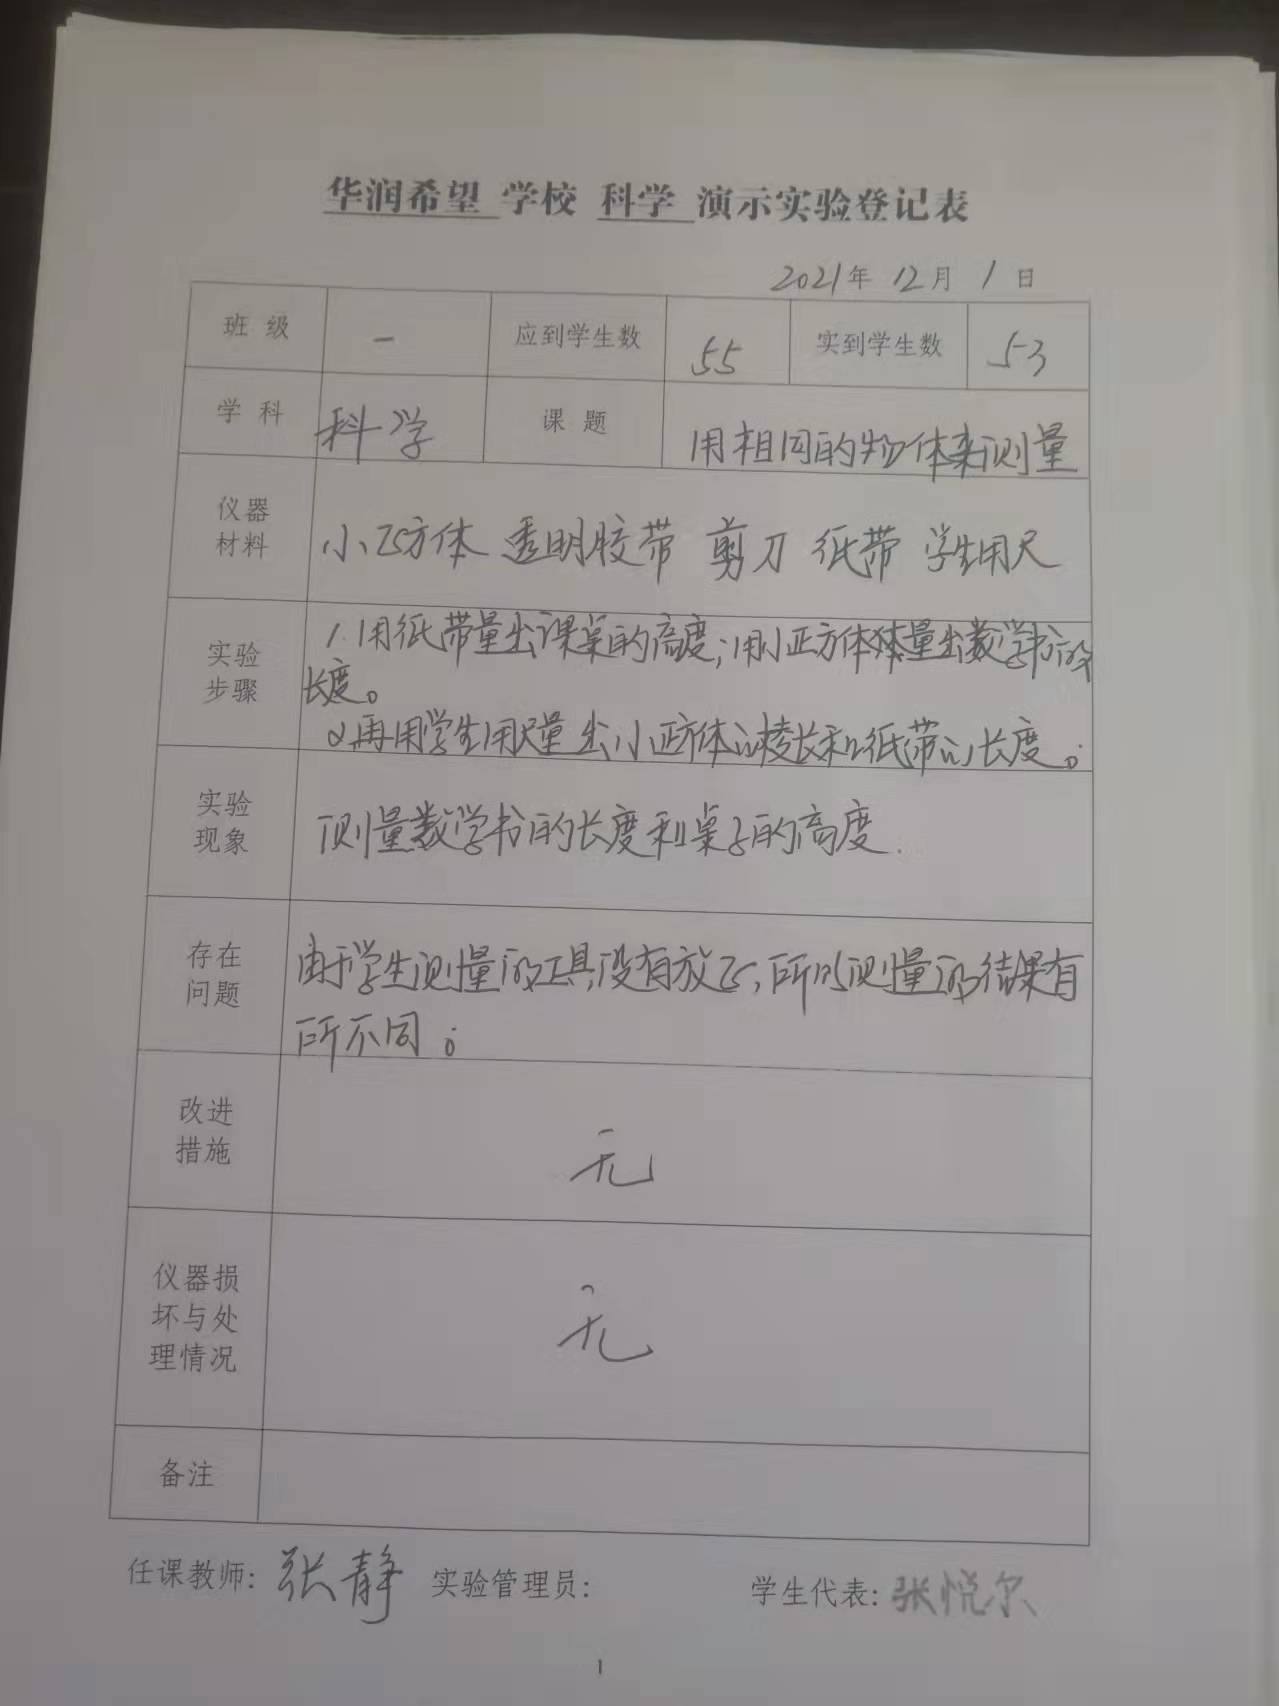 华润希望 学校 科学 演示实验登记表
2021年 12月 1日
班级 一 应到学生数 55 实到学生数 53
学科 科学 课题 用相同的物体来测量
仪器
材料
小正方体 透明胶带 剪刀 纸带 学生用尺
实验
步骤
1.用纸带量出课桌的高度;用小正方体量出数学书的
长度。
2.再用学生用尺量出小正方体的棱长和纸带的长度。
实验
现象
测量数学书的长度和桌子的高度.
存在
问题
由于学生测量的工具没有放正,所以测量的结果有
所不同。
改进
措施
无
仪器损
坏与处
理情况
无
备注
任课教师:张静 实验管理员: 学生代表:张悦尔
1